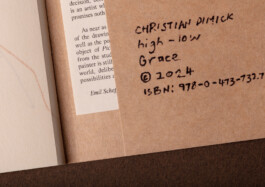 decision,
is an artist wh
promises noth
As next as
of the drawin
well as the po
object of Pic
from the stud
painter is still
world, delibe
possibilities o
Emil Schef
CHRISTIAN DIMICK
high - low
Grace
© 2024
ISBN: 978-0-473-732.7